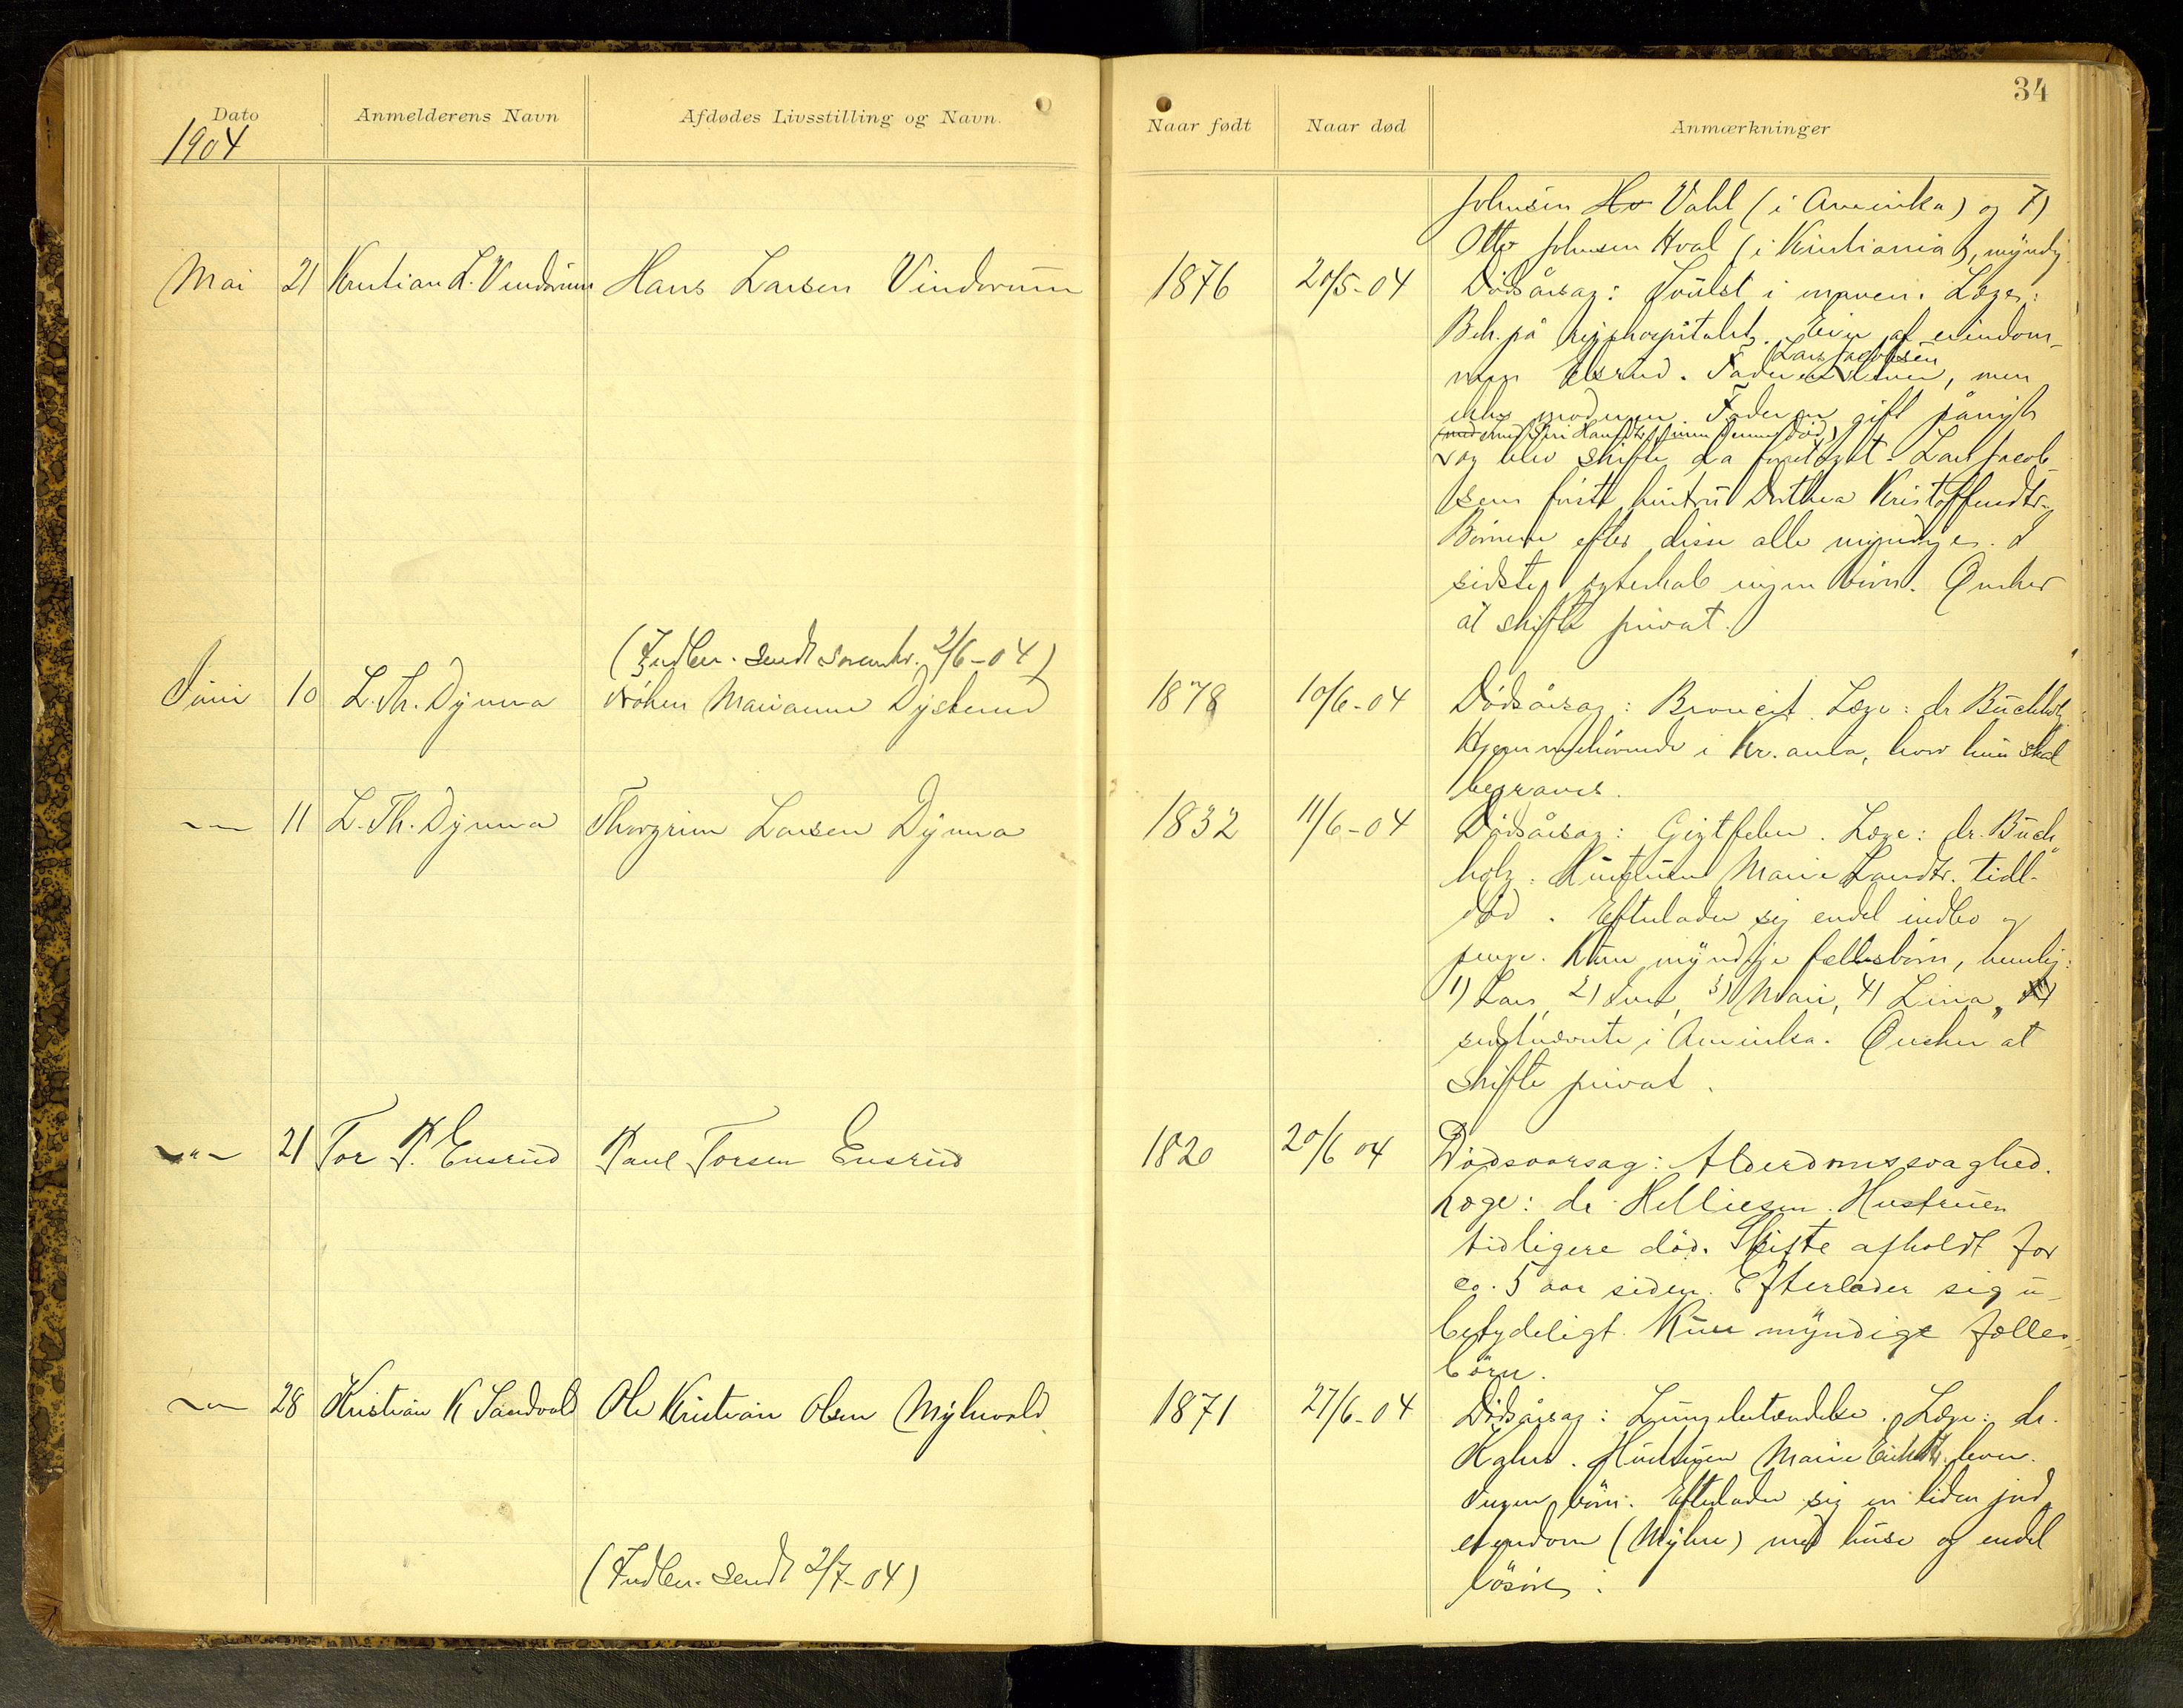 34
Dato
Anmelderens Navn
Afdødes Livsstilling og Navn.
Naar født
Naar død
Anmærkninger
1904
Johnsen Ho Vahl (i Amerika) og 7)
Otto Johnsen Hval (i Kristiania), myndig.
Mai 21 Kristian L. Vindorum Hans Larsen Vindorum 1876 20/5-04 Dødsårsag: Svulst i maven. Læge:
Beh. på rigshospitalet. Eier af eiendom-
men Elsrud. Faderen Lars Jacobsen lever, men
ikke moderen. Faderen gift påny
og blev skifte da foretaget. Lars Jacob-
sens første hustru Dorthea Kristoffersdtr.
Børnene efter disse alle myndige. I
sidste egteskab ingen børn. Ønsker
at skifte privat.
(Indber. sendt sorenskr. 2/6-04)
Juni 10 L. Th. Dynna Frøken Marianne Dysterud 1878 10/6-04 Dødsårsag: Broncit. Læge: dr Buchholz.
Hjemmehørende i Kr.ania, hvor hun skal
begraves.
-"- 11 L. Th. Dynna Thorgrim Larsen Dynna 1832 11/6-04 Dødsårsag: Gigtfeber. Læge: dr. Buch
holz. Hustruen Marie Larsdtr. tidl.
død. Efterlader sig endel indbo og
penge. Kun myndige fællesbørn, nemlig:
1) Lars, 2) 3) Mari, 4) Lina,
sidstnævnte i Amerika. Ønsker at
skifte privat.
-"- 21 Tor P. Ensrud Paul Torsen Ensrud 1820 20/6 04 Dødsaarsag: Alderdomssvaghed.
Læge: dr Helliesen. Hustruen
tidligere død. Skifte afholdt for
ca. 5 aar siden. Efterlader sig u-
betydeligt. Kun myndige fælles-
börn.
-"- 28 Kristian K Sandvold Ole Kristian Olsen Myhrvold 1871 27/6-04 Dødsårsag: Lungebetændelse. Læge: dr.
Hustruen Marie lever.
Ingen børn. Efterlader sig en liden jord
eiendom (Myhre) med huse og endel
løsøre.
(Indber. sendt 2/7-04)